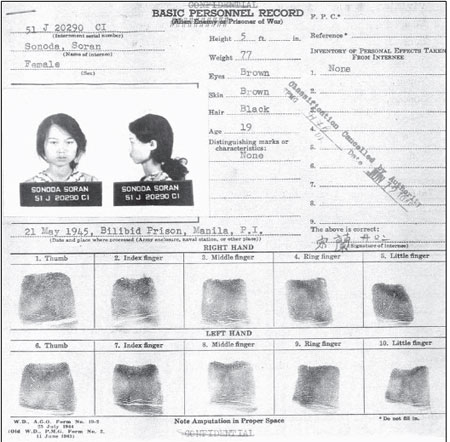 CONFIDENTIAL
BASIC PERSONNEL RECORD
(Alien Enemy or Prisoner of War)
51 J 20290 CI
(Internment serial number)
Sonoda, Soran
(Name of internee)
Female
(Sex)
Height 5 ft. in.
Weight 77
Eyes Brown
Skin Brown
Hair Black
Age 19
Distinguishing marks or
characteristics:
None
F. P. C.*
Reference*
INVENTORY OF PERSONAL EFFECTS TAKEN
FROM INTERNEE
1. None
2.
3.
4.
5.
6.
7.
8.
9.
Classification Cancelled
By Authority
Date
The above is correct:
(Signature of internee)
SONODA SORAN
51 J 20290 CI
SONODA SORAN
51 J 20290 CI
21 May 1945, Bilibid Prison, Manila, P.I.
(Date and place where processed (Army enclosure, naval station, or other place))
RIGHT HAND
1. Thumb
2. Index finger
3. Middle finger
4. Ring finger
5. Little finger
LEFT HAND
6. Thumb
7. Index finger
8. Middle finger
9. Ring finger
10. Little finger
W.D., A.G.O. Form No. 19-2
25 July 1944
(Old W.D., P.M.G. Form No. 2,
11 June 1943)
Note Amputation in Proper Space
* Do not fill in.
CONFIDENTIAL